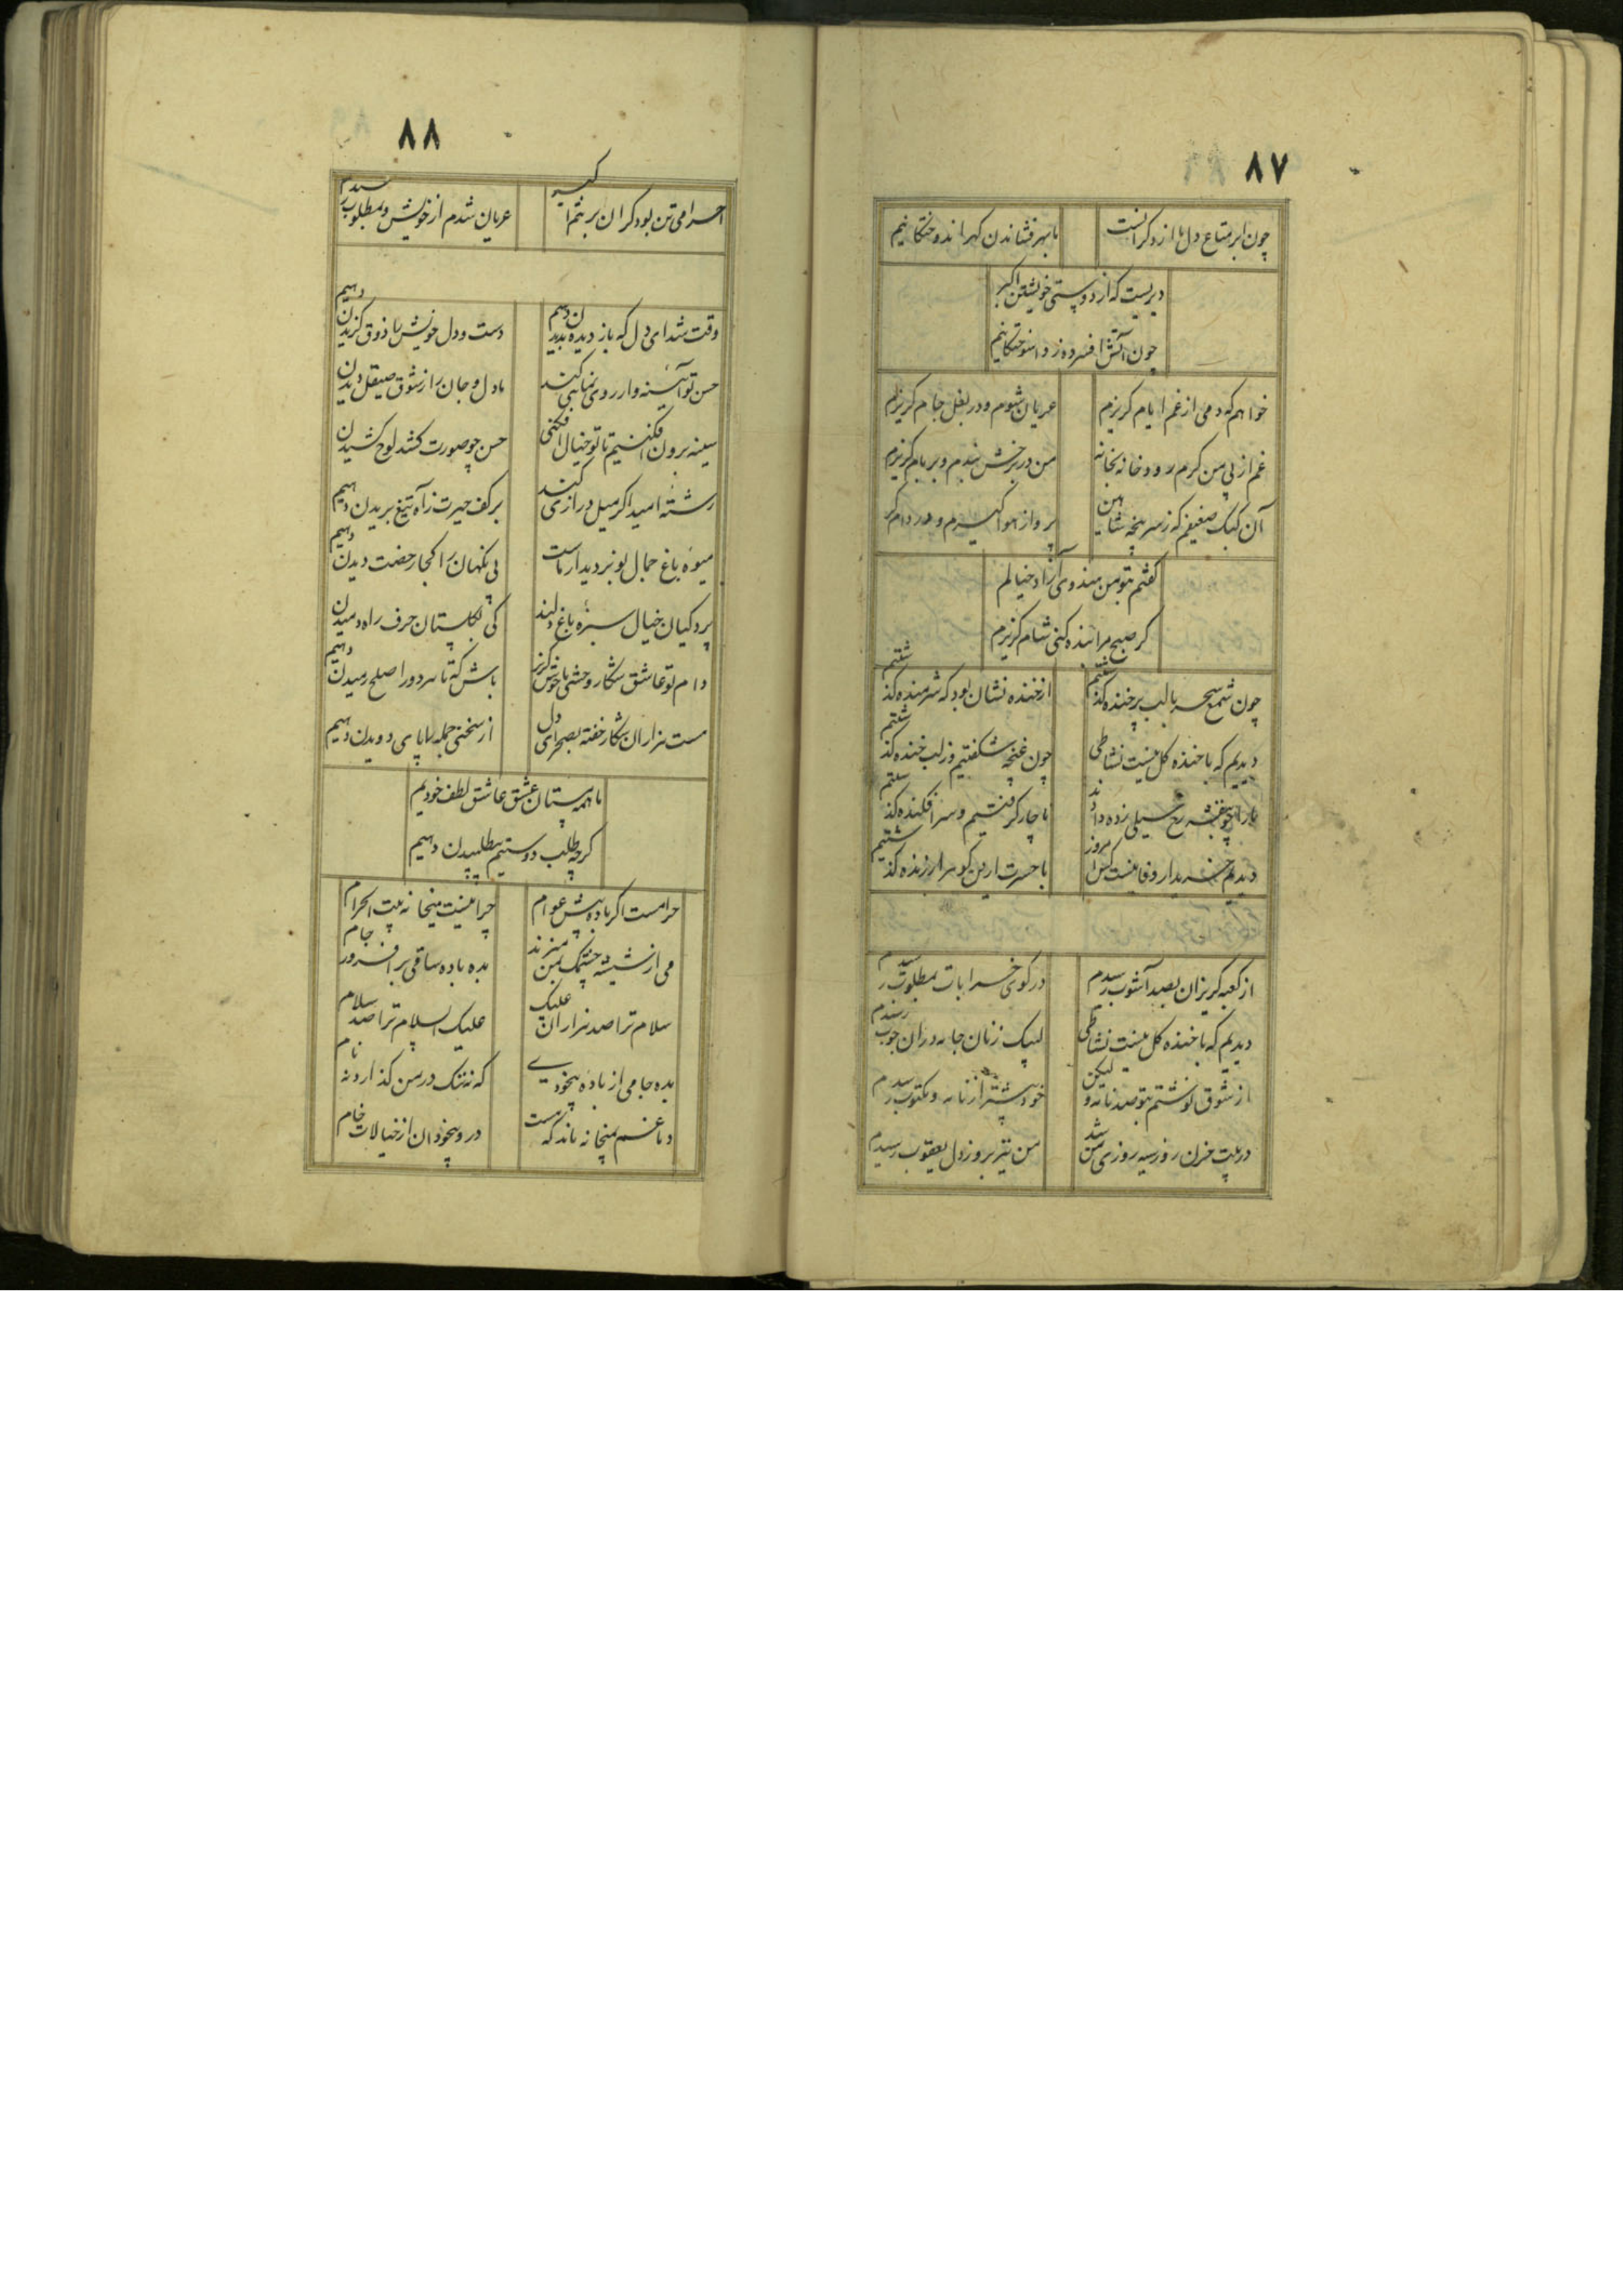 ۸۷
چون ابر متاع دل ما از دگرانست
ما بهر فشاندن گهر اندوختگانیم
دیریست که از دوستی خویشتن اکبر
چون آتش افسرده ز واسوختگانیم
خواهم که دمی از غم ایام گریزم
عریان شوم و در بغل جام گریزم
غم از پی من گرم رود خانه بخانه
من در برخش بندم و بر بام گریزم
آن کبک ضعیفم که ز سرپنجه شاهین
پرواز هوا گیرم و در دام گریزم
گفتم بتو من هندوی آزاد خیالم
گر صبح مرا بنده کنی شام گریزم
چون شمع سحر با لب پرخنده گذشتیم
از خنده نشان بود که شرمنده گذشتیم
دیدیم که با خنده گل نیست نشاطی
چون غنچه شکفتیم و ز لب خنده گذشتیم
ما را چو بنفشه رخ سیلی زده دادند
ناچار گرفتیم و سرافکنده گذشتیم
دیدیم خریدار وفا نیست کس امروز
با حسرت ازین گوهر ارزنده گذشتیم
از کعبه گریزان بصد آشوب رسیدم
در کوی خرابات بمطلوب رسیدم
دیدیم که با خنده گل نیست نشاطی
لبیک زنان جامه دران خوب رسیدم
از شوق نوشتم بتو صد نامه ولیکن
خود پیشتر از نامه و مکتوب رسیدم
در بیت حزن روز سیه روزی من شد
من نیز بروز دل یعقوب رسیدم
۸۸
احرامی تن بود گران بر تنم اکبر
عریان شدم از خویش و بمطلوب رسیدم
وقت شد ای دل که باز دیده بدیدن دهیم
دست و دل خویش را ذوق گزیدن دهیم
حسن تو آئینه وار روی نمایی کند
ما دل و جان را ز شوق صیقل دیدن دهیم
سینه برون افکنیم تا تو خیال افکنی
حسن چو صورت کشد لوح کشیدن
رشته امید اگر میل درازی کند
بر کف حیرت ز آه تیغ بریدن دهیم
میوه باغ جمال نوبر دیدار ماست
کی نگهبان را کجا رخصت دیدن دهیم
پردگیان خیال سبزه باغ دلند
کی بگلستان حرف راه دمیدن دهیم
دام تو عاشق شکار وحشی ما خوش گریز
باش که تا هر دو را صلح رمیدن دهیم
مست هزاران شکار خفته بصحرای دل
از سخنی جمله را پای دویدن دهیم
ما همه پستان عشق عاشق لطف خودیم
گرچه طلب دوستیم بطلبیدن دهیم
حرامست اگر باده پیش عوام
چرا نیست میخانه بیت الحرام
می از شیشه چشمک بمن میزند
بده باده ساقی برافروز جام
سلام ترا صد هزاران علیک
علیک السلام ترا صد سلام
بده جامی از باده بیخودی
که نه ننگ در من گذارد نه نام
دماغم بمیخانه ماند که هست
درو بیخودان از خیالات خام